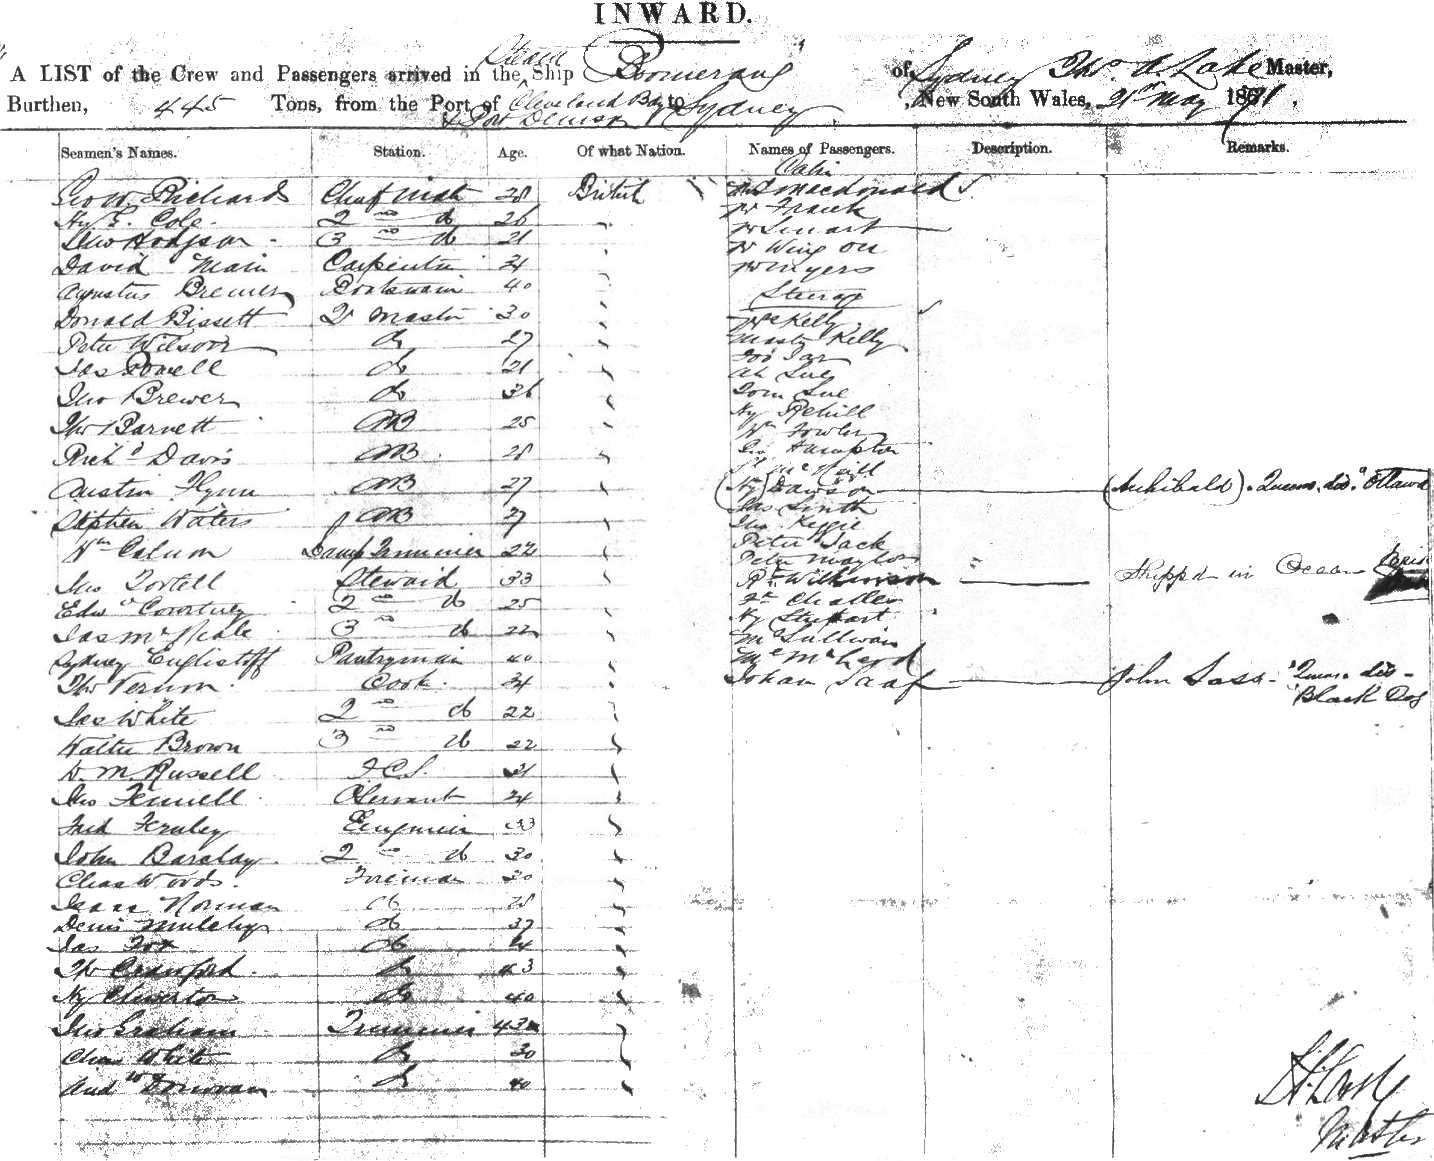 INWARD.
A LIST of the Crew and Passengers arrived in the Steam Ship Boomerang of Sydney Thos. A. Lake Master,
Burthen, 445 Tons, from the Port of Cleveland Bay & Port Denison to Sydney, New South Wales, 21st May 1871.
Seamen's Names. Station. Age. Of what Nation. Names of Passengers. Description. Remarks.
Cabin
Geo W. Richards Chief Mate 28 British Macdonald
Hy E. Cole 2nd do 26 Mr Franck
Jno Hodgson 3nd do 21 Mr Smart
David Main Carpenter 24 Mr Wing On
Augustus Bremer Boatswain 40 Mr Myers
Steerage
Donald Bissett Qr Master 30
Mrs Kelly
Peter Wilson do 27 Master Kelly
Jas Powell do 21
Ah Sue
Jno Brewer do 36 Tom Sue
Hy Rehill
Thos Barnett AB 25 Wm Fowler
Richd Davis AB 28 Geo Hampton
McNeill
Austin Flynn AB 27 (Hy) Dawson (Archibald). Queens. dis. "Ottawa
Stephen Waters AB 27 Jas Smith
Jno Keggie
Wm Calnon Lamp Trimmer 22 Peter Jack
Peter Maylor
Jno Tortell Steward 33 Rt Wilkinson Shipped in Ocean
Edwd Courtney 2nd do 25
Jas McNeale 3nd do 22 Hy Stewart
McSullivan
Sydney Englistoff Pantryman 40 McLeod
Thos Vernon Cook 24 Johan Saaf John Sass - "Queens. dis -
Jas White 2nd do 22 "Black Dog
Walter Brown 3nd do 22
W. M. Russell I.C.S. 21
Jno Fennell O Servant 24
Fred Fernley Engineer 33
John Barclay 2nd do 30
Chas Woods Fireman 30
Isaac Norman do 28
Denis Mulchy do 37
Jas Fox do 24
Thos Crawford do 43
Hy Cliverton do 40
Jno Graham Trimmer 43
Chas White do 30
Andw Donovan do 40
Master